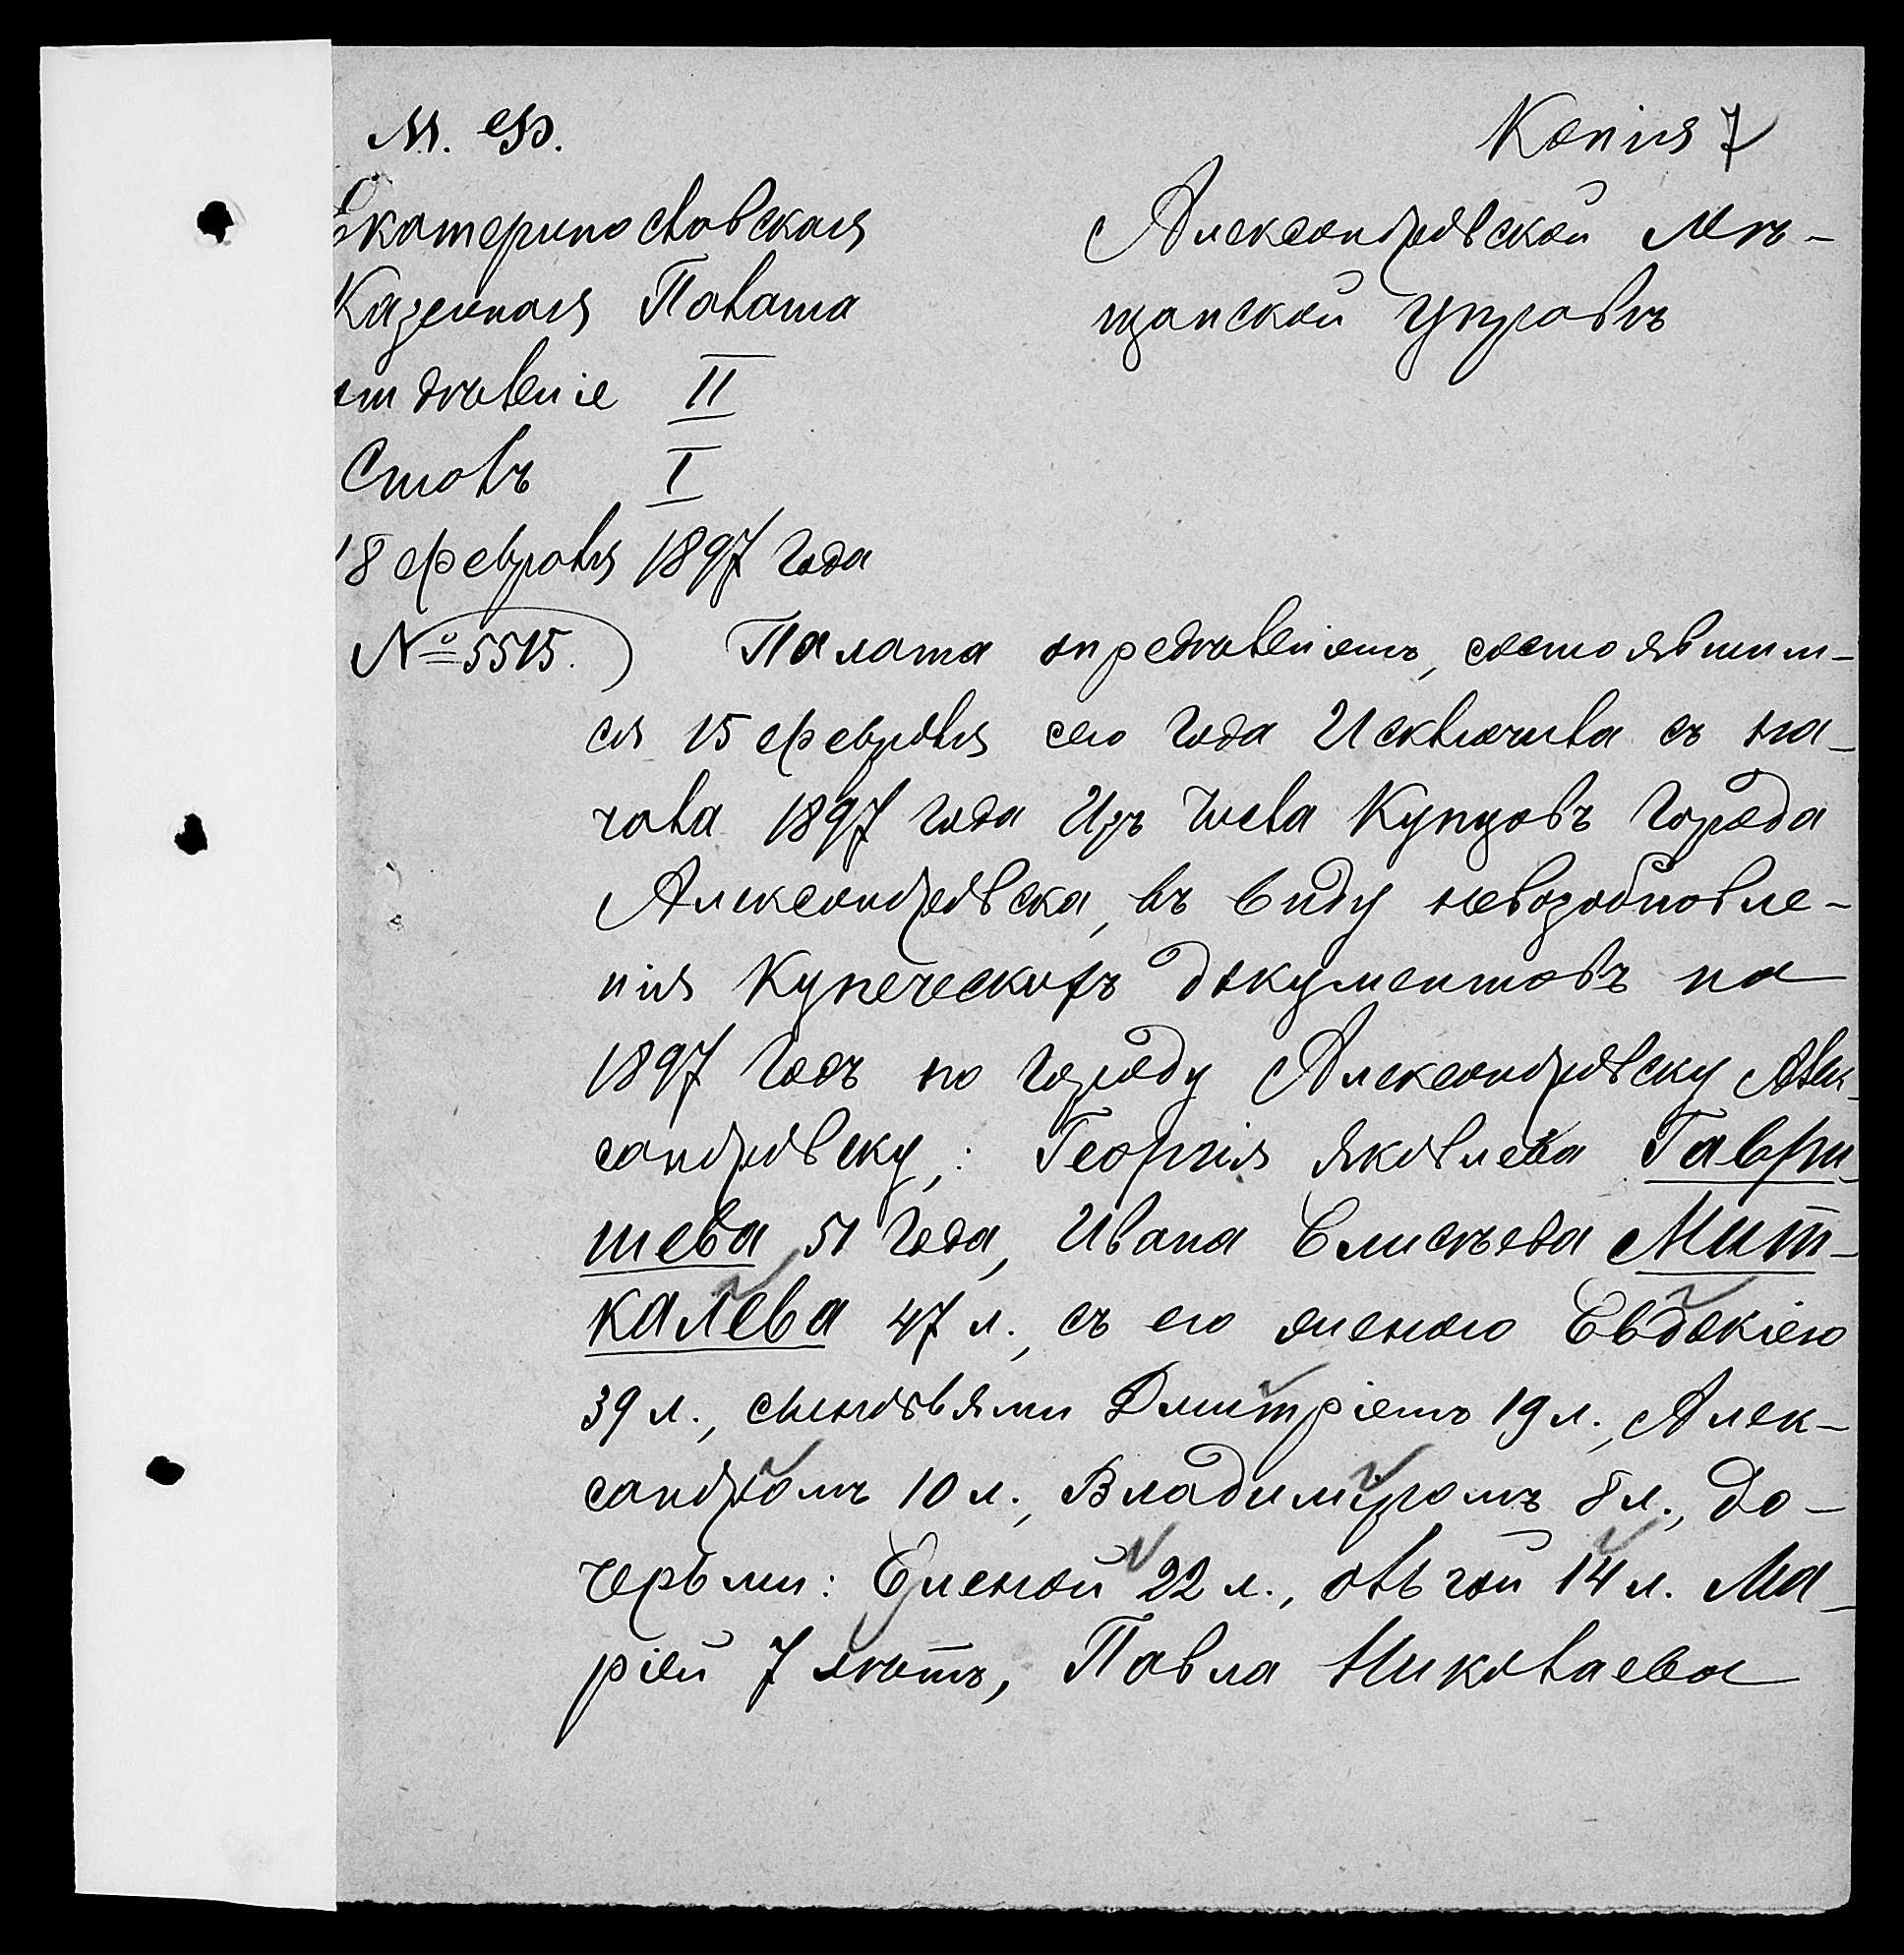 М. Ф.
Копія 7
Екатеринославская
Казенная Палата
отдѣленіе II
Столъ I
18 февраля 1897 года
№ 5515.
Александровской Мѣ-
щанской Управѣ
Палата опредѣленіемъ, состоявшим-
ся 15 февраля сего года исключила съ на-
чала 1897 года изъ числа купцовъ города
Александровска, въ виду невозобновле-
нія купеческихъ документовъ на
1897 годъ по городу Александровску Алек-
сандровску,: Георгія Яковлева Гаври-
шева 51 года, Ивана Елисѣева Мит-
калева 47 л., съ его женою Евдокіею
39 л., сыновьями Дмитріемъ 19 л., Алек-
сандромъ 10 л., Владиміромъ 8 л., до-
черьми: Еленой 22 л., Ольгой 14 л. Ма-
ріей 7 лѣтъ, Павла Николаева